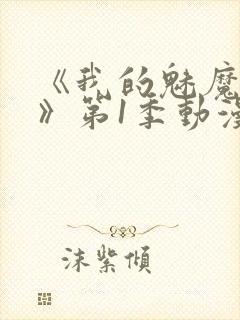 《我的魅魔
》第1季動漫
沫紫傾